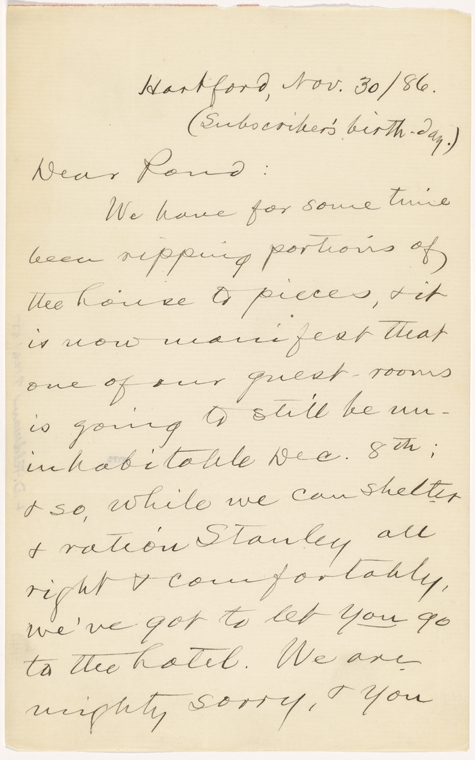 Hartford, Nov. 30/86.
(Subscriber's birth-day.)
Dear Pond:
We have for some time
been ripping portions of
the house to pieces, & it
is now manifest that
one of our guest-rooms
is going to still be un-
inhabitable Dec. 8th;
& so, while we can shelter
& ration Stanley all
right & comfortably,
we've got to let you go
to the hotel. We are
mighty sorry, & you